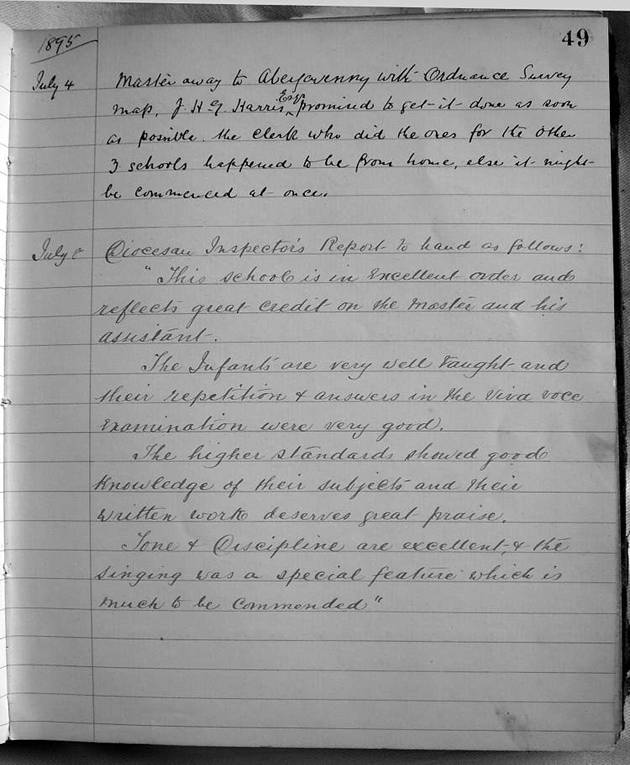 1895
49
July 4 Master away to Abergavenny with Ordnance Survey
map, J H G Harris Esq promised to get it done as soon
as possible. The Clerk who did the ones for the other
3 schools happened to be from home, else it might
be commenced at once.
July 8 Diocesan Inspector's Report to hand as follows:
"This school is in Excellent order and
reflects great credit on the Master and his
assistant.
The Infants are very well taught and
their repetition & answers in the viva voce
Examination were very good.
The higher standards showed good
knowledge of their subjects and their
written work deserves great praise.
Tone & Discipline are excellent & the
singing was a special feature which is
much to be commended"